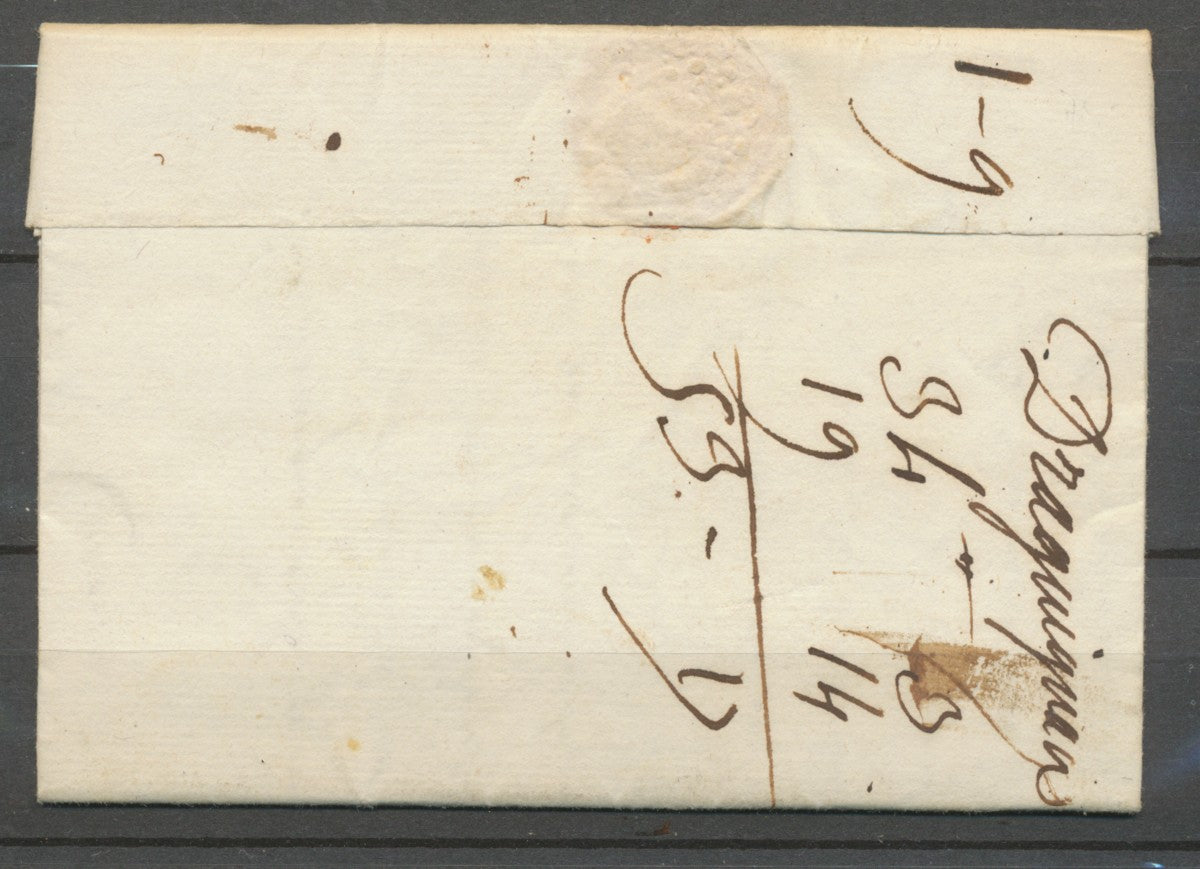 1-9
Draguignan
34 - 3
19 14
53 - 17